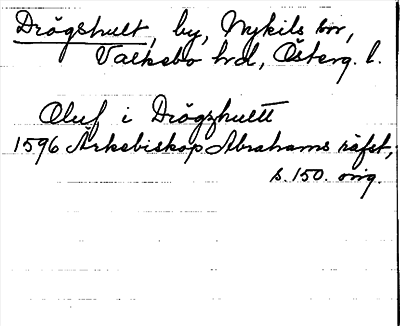 Drögshult, by, Nykils sn,
Valkebo hd, Österg. l.
Oluf i Drögzhultt
1596 Ärkebiskop Abrahams räfst,
s. 150. orig.